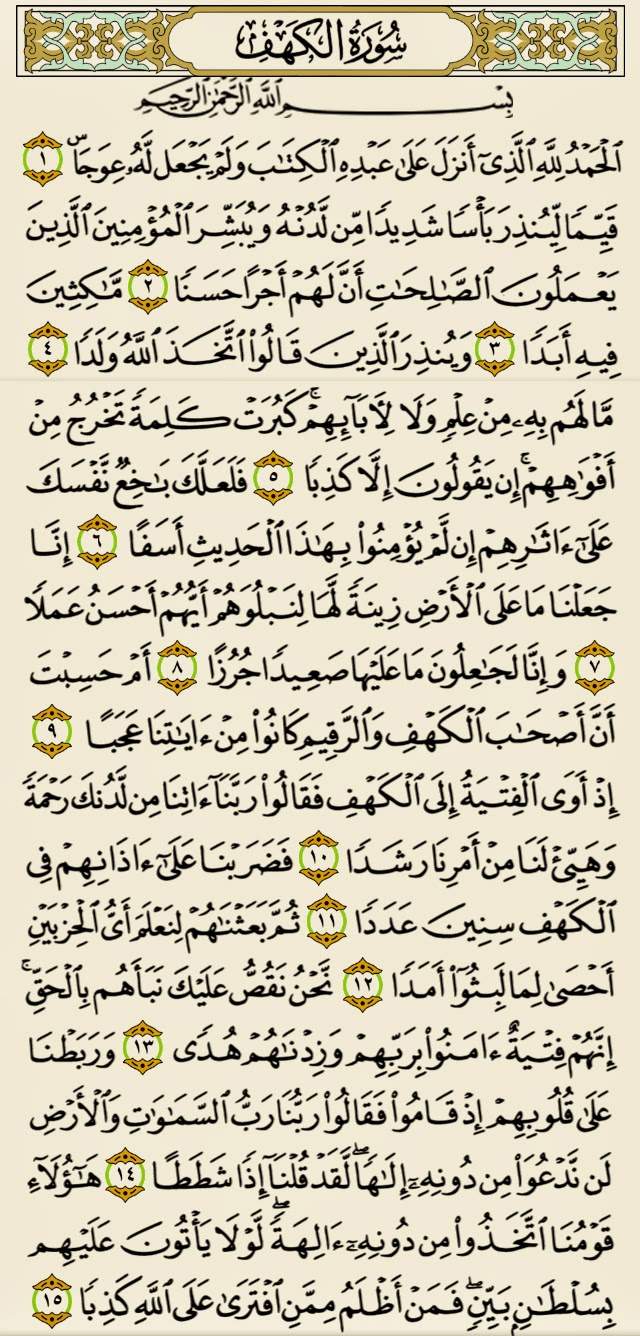 سُورَةُ الكَهْفِ
بِسْمِ ٱللَّهِ ٱلرَّحْمَٰنِ ٱلرَّحِيمِ
ٱلْحَمْدُ لِلَّهِ ٱلَّذِىٓ أَنزَلَ عَلَىٰ عَبْدِهِ ٱلْكِتَٰبَ وَلَمْ يَجْعَل لَّهُۥ عِوَجَاۜ ١
قَيِّمًا لِّيُنذِرَ بَأْسًا شَدِيدًا مِّن لَّدُنْهُ وَيُبَشِّرَ ٱلْمُؤْمِنِينَ ٱلَّذِينَ
يَعْمَلُونَ ٱلصَّٰلِحَٰتِ أَنَّ لَهُمْ أَجْرًا حَسَنًا ٢ مَّٰكِثِينَ
فِيهِ أَبَدًا ٣ وَيُنذِرَ ٱلَّذِينَ قَالُوا۟ ٱتَّخَذَ ٱللَّهُ وَلَدًا ٤
مَّا لَهُم بِهِۦ مِنْ عِلْمٍ وَلَا لِـَٔابَآئِهِمْ ۚ كَبُرَتْ كَلِمَةً تَخْرُجُ مِنْ
أَفْوَٰهِهِمْ ۚ إِن يَقُولُونَ إِلَّا كَذِبًا ٥ فَلَعَلَّكَ بَٰخِعٌ نَّفْسَكَ
عَلَىٰٓ ءَاثَٰرِهِمْ إِن لَّمْ يُؤْمِنُوا۟ بِهَٰذَا ٱلْحَدِيثِ أَسَفًا ٦ إِنَّا
جَعَلْنَا مَا عَلَى ٱلْأَرْضِ زِينَةً لَّهَا لِنَبْلُوَهُمْ أَيُّهُمْ أَحْسَنُ عَمَلًا
٧ وَإِنَّا لَجَٰعِلُونَ مَا عَلَيْهَا صَعِيدًا جُرُزًا ٨ أَمْ حَسِبْتَ
أَنَّ أَصْحَٰبَ ٱلْكَهْفِ وَٱلرَّقِيمِ كَانُوا۟ مِنْ ءَايَٰتِنَا عَجَبًا ٩
إِذْ أَوَى ٱلْفِتْيَةُ إِلَى ٱلْكَهْفِ فَقَالُوا۟ رَبَّنَآ ءَاتِنَا مِن لَّدُنكَ رَحْمَةً
وَهَيِّئْ لَنَا مِنْ أَمْرِنَا رَشَدًا ١٠ فَضَرَبْنَا عَلَىٰٓ ءَاذَانِهِمْ فِى
ٱلْكَهْفِ سِنِينَ عَدَدًا ١١ ثُمَّ بَعَثْنَٰهُمْ لِنَعْلَمَ أَىُّ ٱلْحِزْبَيْنِ
أَحْصَىٰ لِمَا لَبِثُوٓا۟ أَمَدًا ١٢ نَّحْنُ نَقُصُّ عَلَيْكَ نَبَأَهُم بِٱلْحَقِّ ۚ
إِنَّهُمْ فِتْيَةٌ ءَامَنُوا۟ بِرَبِّهِمْ وَزِدْنَٰهُمْ هُدًى ١٣ وَرَبَطْنَا
عَلَىٰ قُلُوبِهِمْ إِذْ قَامُوا۟ فَقَالُوا۟ رَبُّنَا رَبُّ ٱلسَّمَٰوَٰتِ وَٱلْأَرْضِ
لَن نَّدْعُوَا۟ مِن دُونِهِۦٓ إِلَٰهًا ۖ لَّقَدْ قُلْنَآ إِذًا شَطَطًا ١٤ هَٰٓؤُلَآءِ
قَوْمُنَا ٱتَّخَذُوا۟ مِن دُونِهِۦٓ ءَالِهَةً ۖ لَّوْلَا يَأْتُونَ عَلَيْهِم
بِسُلْطَٰنٍۭ بَيِّنٍ ۖ فَمَنْ أَظْلَمُ مِمَّنِ ٱفْتَرَىٰ عَلَى ٱللَّهِ كَذِبًا ١٥